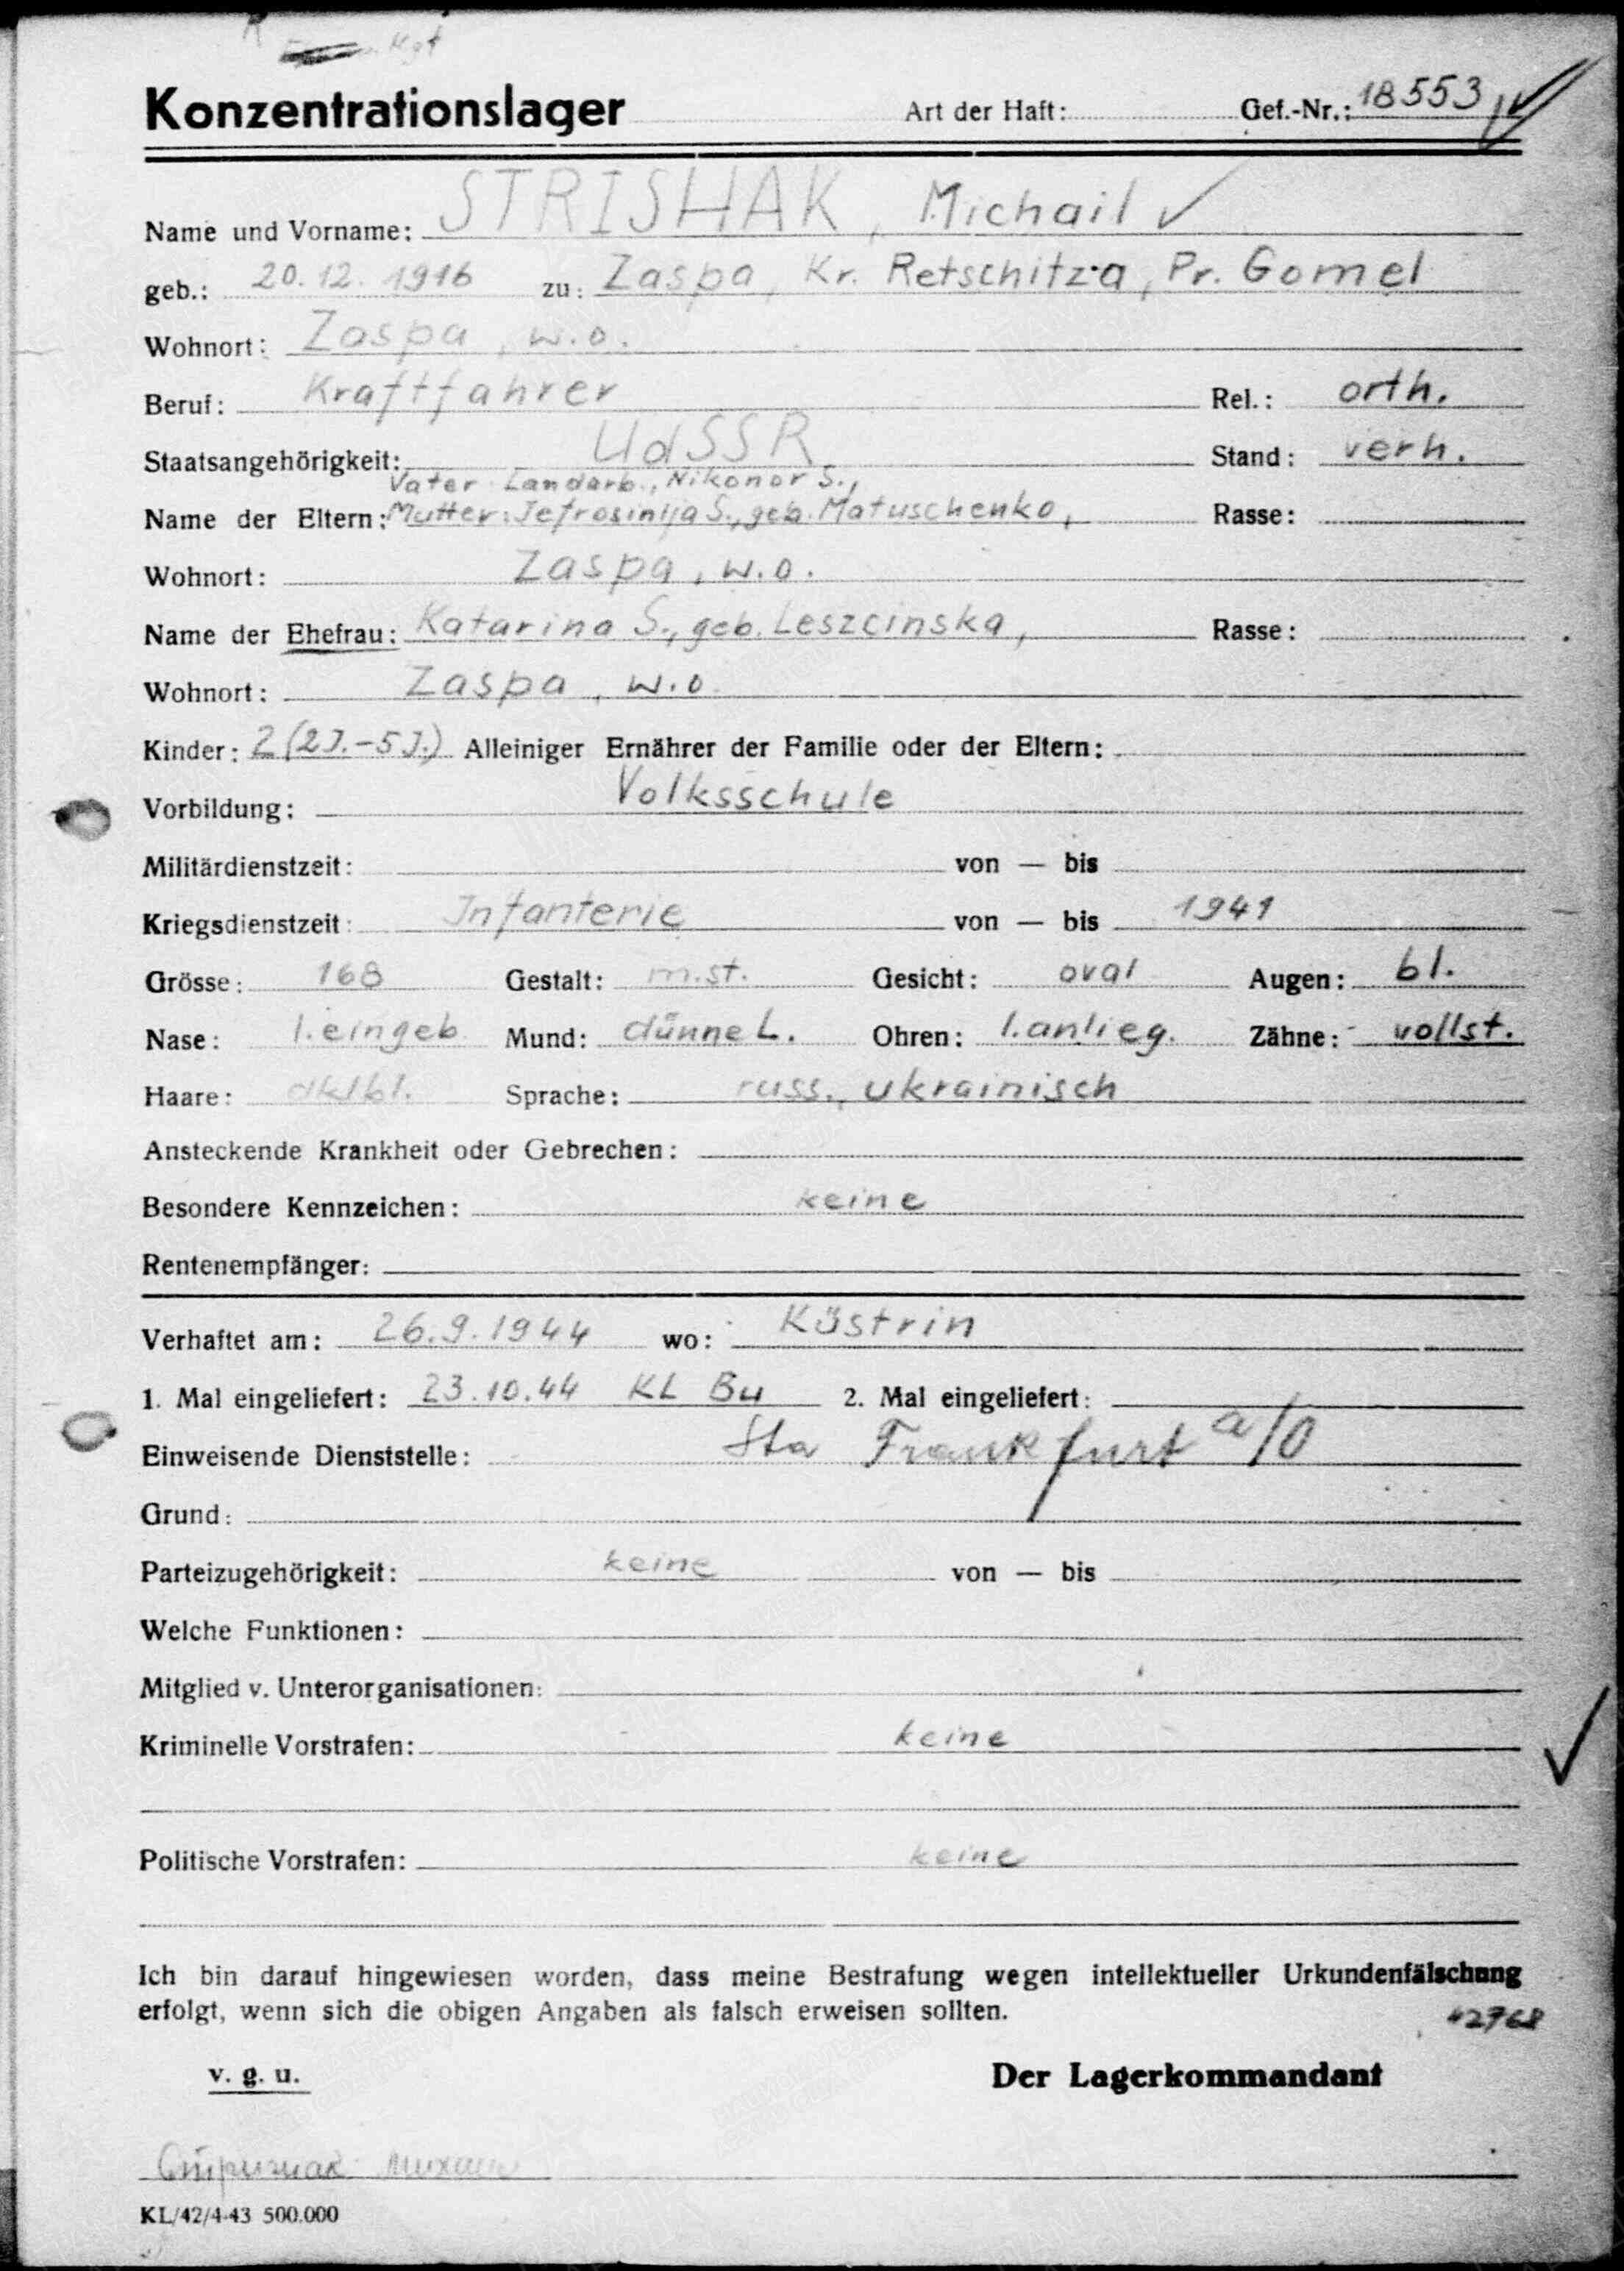 Kgf
Konzentrationslager Art der Haft: Gef.-Nr.: 18553
Name und Vorname: STRISHAK, Michail
geb.: 20.12.1916 zu: Zaspa, Kr. Retschitza, Pr. Gomel
Wohnort: Zaspa, w.o.
Beruf: Kraftfahrer Rel.: orth.
Staatsangehörigkeit: UdSSR Stand: verh.
Vater: Landarb., Nikonor S.,
Name der Eltern: Mutter: Jefrosinija S., geb. Matuschenko, Rasse:
Wohnort: Zaspa, w.o.
Name der Ehefrau: Katarina S., geb. Leszcinska, Rasse:
Wohnort: Zaspa, w.o.
Kinder: 2 (2J.-5J.) Alleiniger Ernährer der Familie oder der Eltern:
Vorbildung: Volksschule
Militärdienstzeit: von — bis
Kriegsdienstzeit: Infanterie von — bis 1941
Grösse: 168 Gestalt: m.st. Gesicht: oval Augen: bl.
Nase: l.eingeb. Mund: dünne L. Ohren: l.anlieg. Zähne: vollst.
Haare: dklbl. Sprache: russ., ukrainisch
Ansteckende Krankheit oder Gebrechen:
Besondere Kennzeichen: keine
Rentenempfänger:
Verhaftet am: 26.9.1944 wo: Küstrin
1. Mal eingeliefert: 23.10.44 KL Bu 2. Mal eingeliefert:
Einweisende Dienststelle: Sta Frankfurt a/O
Grund:
Parteizugehörigkeit: keine von — bis
Welche Funktionen:
Mitglied v. Unterorganisationen:
Kriminelle Vorstrafen: keine
Politische Vorstrafen: keine
Ich bin darauf hingewiesen worden, dass meine Bestrafung wegen intellektueller Urkundenfälschung
erfolgt, wenn sich die obigen Angaben als falsch erweisen sollten.
42768
v. g. u. Der Lagerkommandant
Стрижак Михаил
KL/42/4-43 500.000